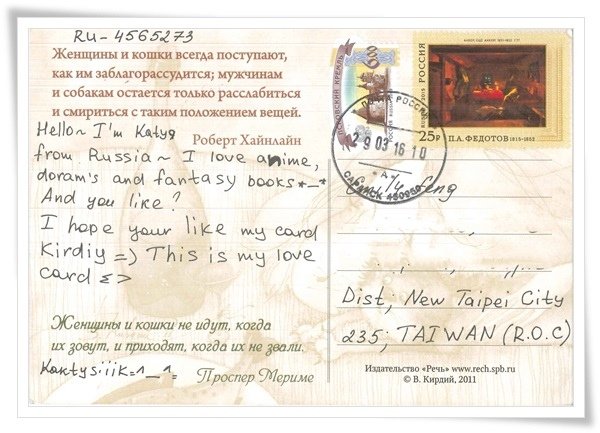 RU-4565273
Женщины и кошки всегда поступают,
как им заблагорассудится; мужчинам
и собакам остается только расслабиться
и смириться с таким положением вещей.
Роберт Хайнлайн
Hello~ I'm Katya
from Russia~ I love anime,
doram's and fantasy books *_*
And you like?
I hope your like my card
Kirdiy =) This is my love
card ε>
Женщины и кошки не идут, когда
их зовут, и приходят, когда их не звали.
Проспер Мериме
Kaktysiiik=^_^=
МОСКОВСКИЙ КРЕМЛЬ
600
РОССИЯ
25₽
П.А.ФЕДОТОВ 1815-1852
29 03 16 10
450959
Dist, New Taipei City
235, TAIWAN (R.O.C)
Издательство «Речь» www.rech.spb.ru
© В. Кирдий, 2011